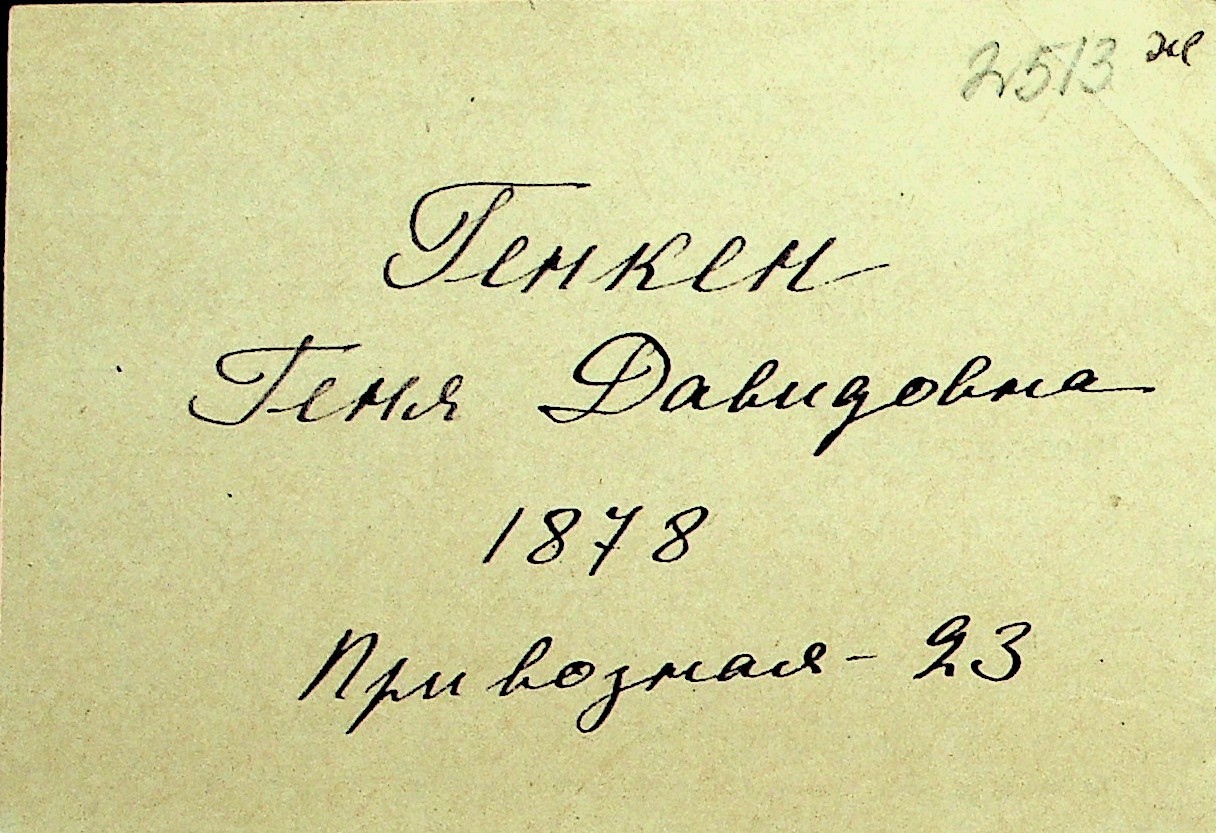 2513 ж
Генкен
Геня Давидовна
1878
Привозная - 23